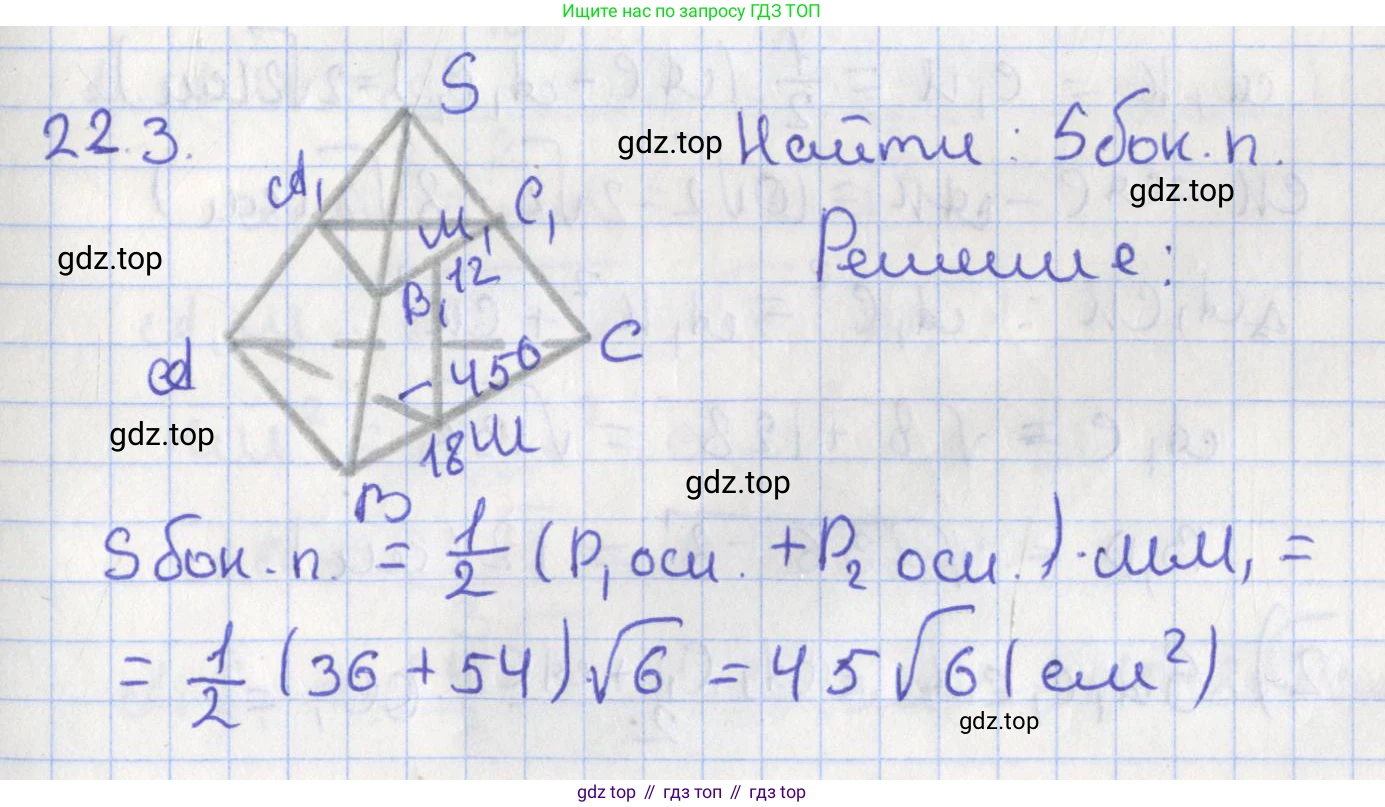 Ищите нас по запросу ГДЗ ТОП
S
22.3.
gdz.top
Найти: Sбок.п.
A₁
C₁
gdz.top
M₁
gdz.top
12
B₁
Решение:
A
C
45°
gdz.top
18 M
gdz.top
B
Sбок.п. = 1/2 (P₁ осн. + P₂ осн.) · MM₁ =
= 1/2 (36 + 54) √6 = 45 √6 (см²)
gdz.top
gdz top // гдз топ // гдз top